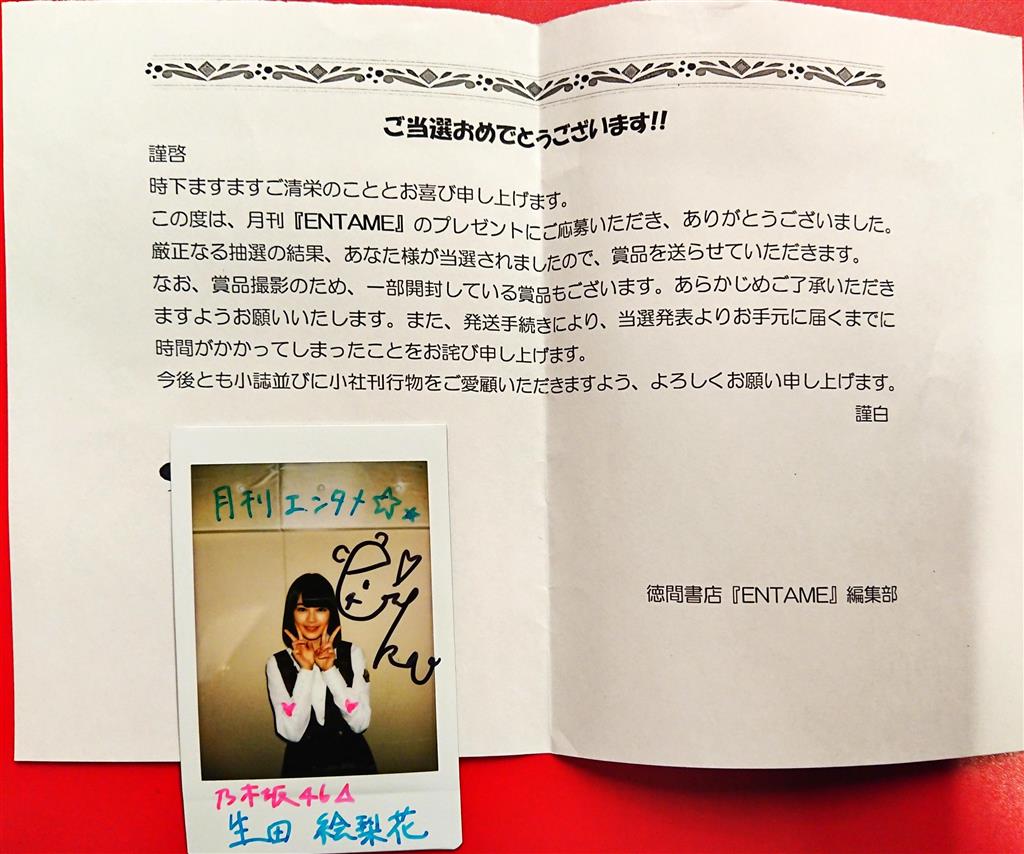 ご当選おめでとうございます!!
謹啓
時下ますますご清栄のこととお喜び申し上げます。
この度は、月刊『ENTAME』のプレゼントにご応募いただき、ありがとうございました。
厳正なる抽選の結果、あなた様が当選されましたので、賞品を送らせていただきます。
なお、賞品撮影のため、一部開封している賞品もございます。あらかじめご了承いただき
ますようお願いいたします。また、発送手続きにより、当選発表よりお手元に届くまでに
時間がかかってしまったことをお詫び申し上げます。
今後とも小誌並びに小社刊行物をご愛顧いただきますよう、よろしくお願い申し上げます。
謹白
徳間書店『ENTAME』編集部
月刊エンタメ☆★
乃木坂46△
生田 絵梨花